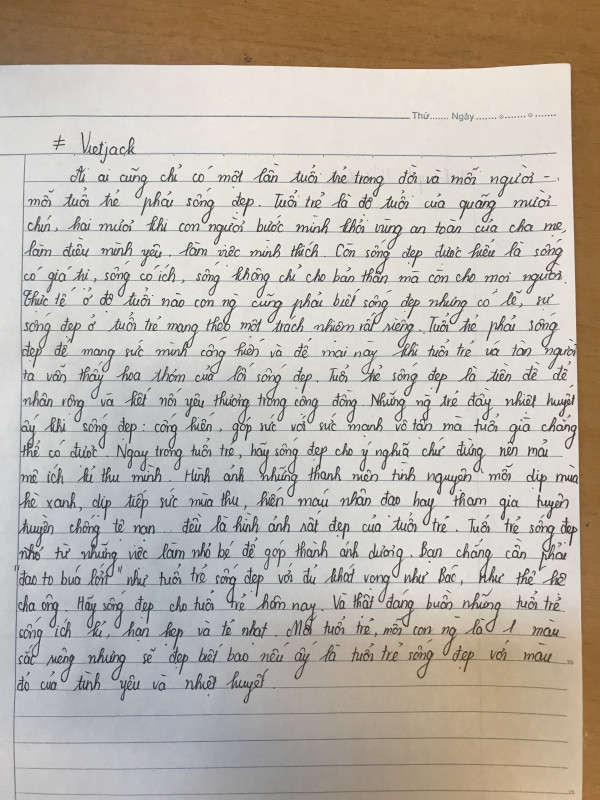 Thứ....... Ngày.......
# Vietjack
Ai ai cũng chỉ có một lần tuổi trẻ trong đời và mỗi người -
mỗi tuổi trẻ phải sống đẹp. Tuổi trẻ là độ tuổi của quãng mười
chín, hai mươi khi con người bước mình khỏi vùng an toàn của cha mẹ,
làm điều mình yêu, làm việc mình thích. Còn sống đẹp được hiểu là sống
có giá trị, sống có ích, sống không chỉ cho bản thân mà còn cho mọi người.
Thực tế ở độ tuổi nào con ng cũng phải biết sống đẹp nhưng có lẽ, sự
sống đẹp ở tuổi trẻ mang theo một trách nhiệm rất riêng. Tuổi trẻ phải sống
đẹp để mang sức mình cống hiến và để mai này khi tuổi trẻ vá tàn người
ta vẫn thấy hoa thơm của lối sống đẹp. Tuổi trẻ sống đẹp là tiền đề để
nhân rộng và kết nối yêu thương trong cộng đồng. Những ng trẻ đầy nhiệt huyết
ấy khi sống đẹp: cống hiến, góp sức với sức mạnh vô tận mà tuổi già chẳng
thể có được. Ngay trong tuổi trẻ, hãy sống đẹp cho ý nghĩa chứ đừng nên mải
mê ích kỉ thu mình. Hình ảnh những thanh niên tình nguyện mỗi dịp mùa
hè xanh, dịp tiếp sức mùa thu, hiến máu nhân đạo hay tham gia tuyên
truyền chống tệ nạn... đều là hình ảnh rất đẹp của tuổi trẻ. Tuổi trẻ sống đẹp
nhớ từ những việc làm nhỏ bé để góp thành ánh dương. Bạn chẳng cần phải
"đao to búa lớn" như tuổi trẻ sống đẹp với đủ khát vọng như Bác, như thế hệ
cha ông. Hãy sống đẹp cho tuổi trẻ hôm nay. Và thật đáng buồn những tuổi trẻ
sống ích kỉ, hạn hẹp và tẻ nhạt. Mỗi tuổi trẻ, mỗi con ng là 1 màu
sắc riêng nhưng sẽ đẹp biết bao nếu ấy là tuổi trẻ sống đẹp với màu
đỏ của tình yêu và nhiệt huyết.
20
25